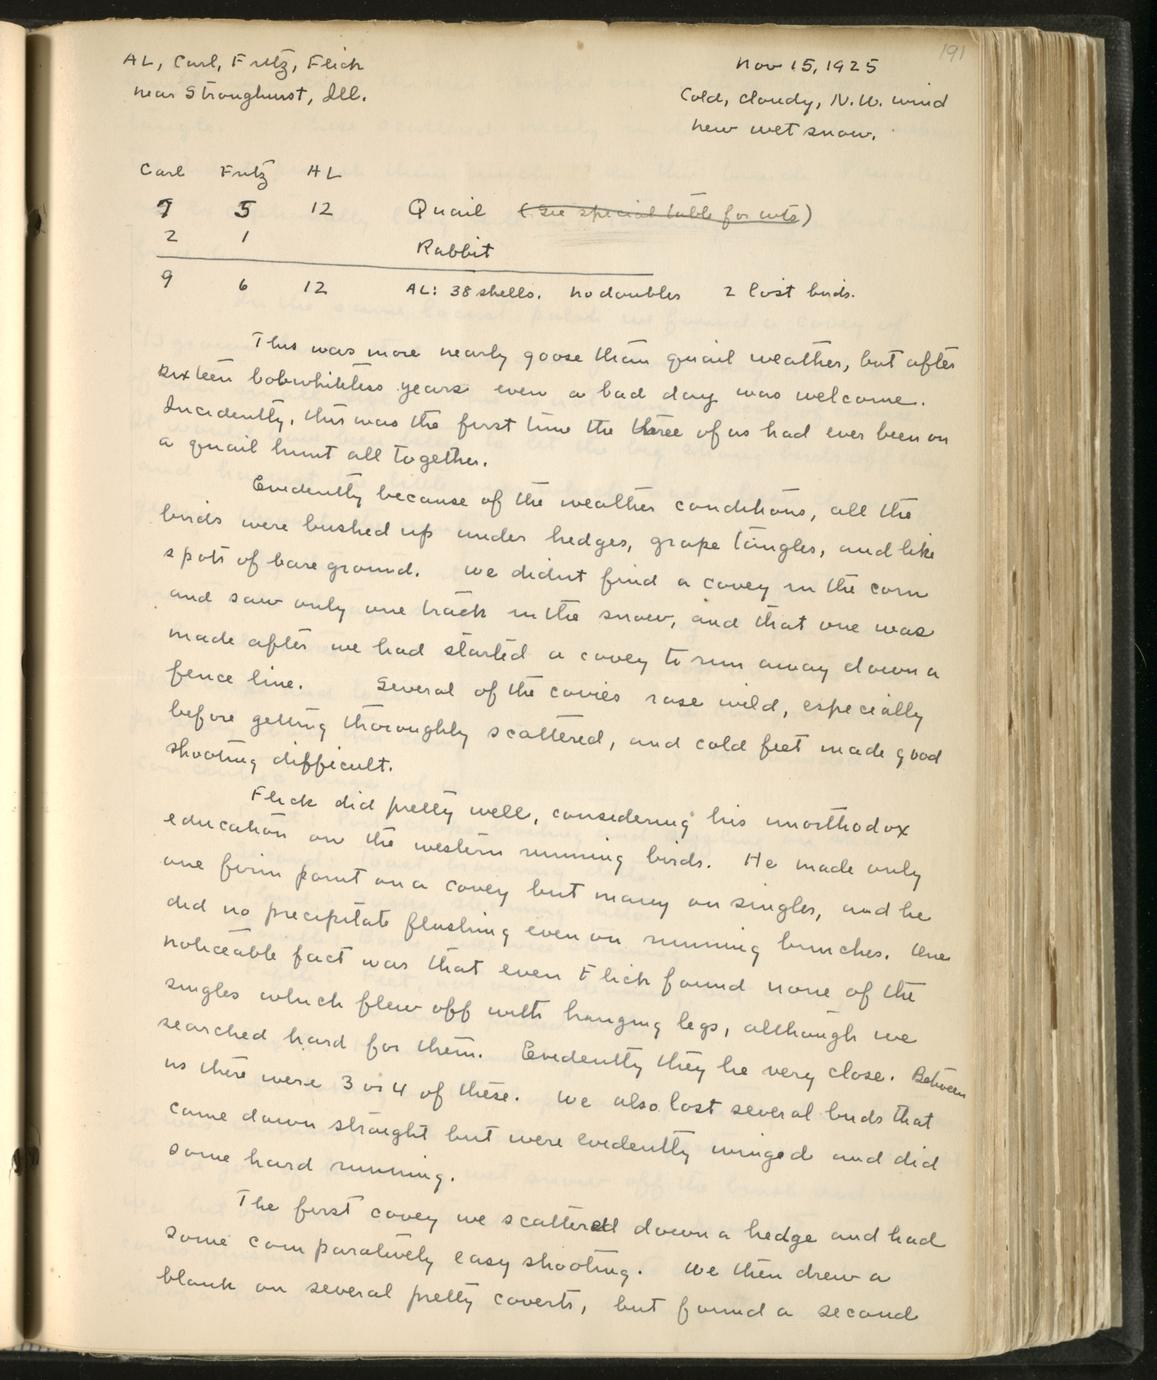 191
AL, Carl, Fritz, Flick
Nov 15, 1925
near Stronghurst, Ill.
Cold, cloudy, N.W. wind
new wet snow.
Carl Fritz AL
7 5 12 Quail (see special table for wts)
2 1 Rabbit
9 6 12 AL: 38 shells. no doubles 2 lost birds.
This was more nearly goose than quail weather, but after
sixteen bobwhiteless years even a bad day was welcome.
Incidently, this was the first time the three of us had ever been on
a quail hunt all together.
Evidently because of the weather conditions, all the
birds were bushed up under hedges, grape tangles, and like
spots of bare ground. We didnt find a covey in the corn
and saw only one track in the snow, and that one was
made after we had started a covey to run away down a
fence line. Several of the covies rose wild, especially
before getting thoroughly scattered, and cold feet made good
shooting difficult.
Flick did pretty well, considering his unorthodox
education on the western running birds. He made only
one firm point on a covey but many on singles, and he
did no precipitate flushing even on running bunches. One
noticeable fact was that even Flick found none of the
singles which flew off with hanging legs, although we
searched hard for them. Evidently they lie very close. Between
us there were 3 or 4 of these. We also lost several birds that
came down straight but were evidently winged and did
some hard running.
The first covey we scattered down a hedge and had
some comparatively easy shooting. We then drew a
blank on several pretty coverts, but found a second